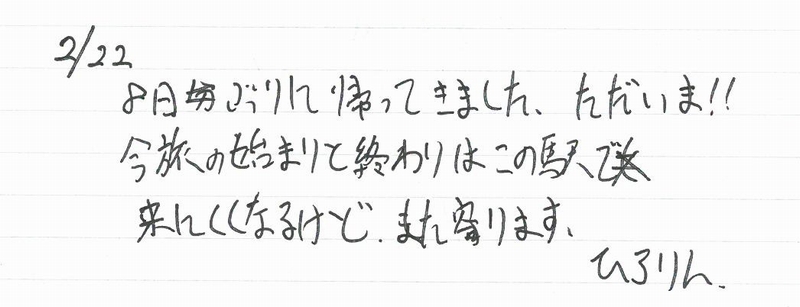 2/22
8日ぶりに帰ってきました、ただいま!!
今旅の始まりと終わりはこの駅で
来にくくなるけど、また寄ります、
ひろりん.